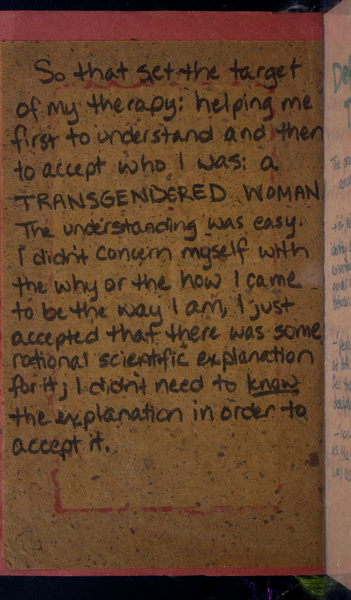 So that set the target
of my therapy: helping me
first to understand and then
to accept who I was: a
TRANSGENDERED WOMAN
The understanding was easy.
I didn't concern myself with
the why or the how I came
to be the way I am, I just
accepted that there was some
rational scientific explanation
for it; I didn't need to know
the explanation in order to
accept it.